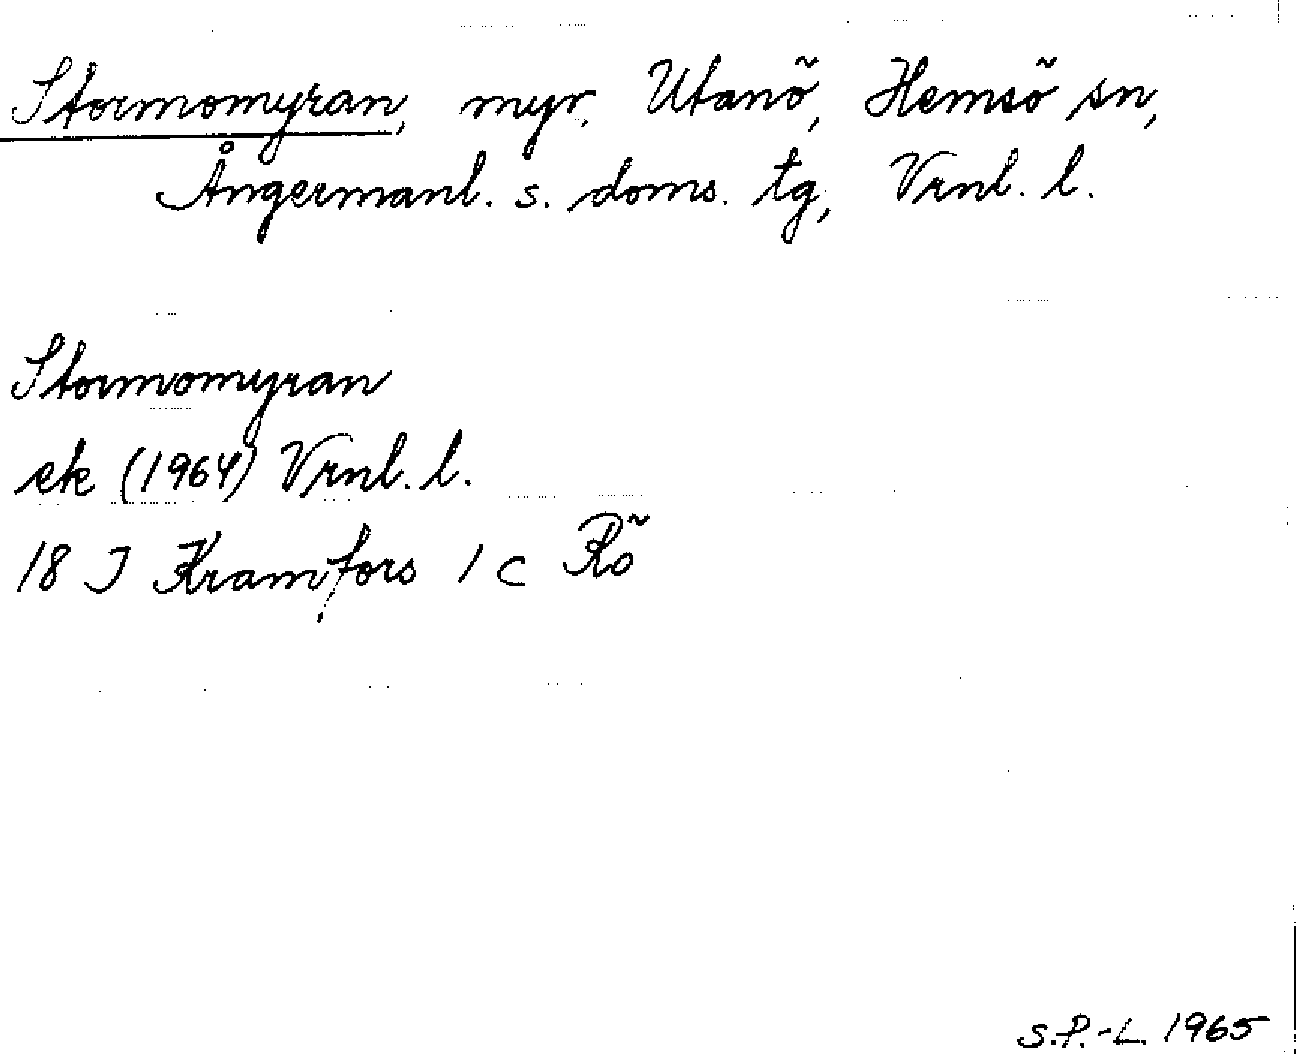 Stormomyran, myr, Utanö, Hemsö sn,
Ångermanl. s. doms. tg, Vrnl. l.
Stormomyran
ek (1964) Vrnl. l.
18 J Kramfors 1 c Rö
S.P.-L. 1965